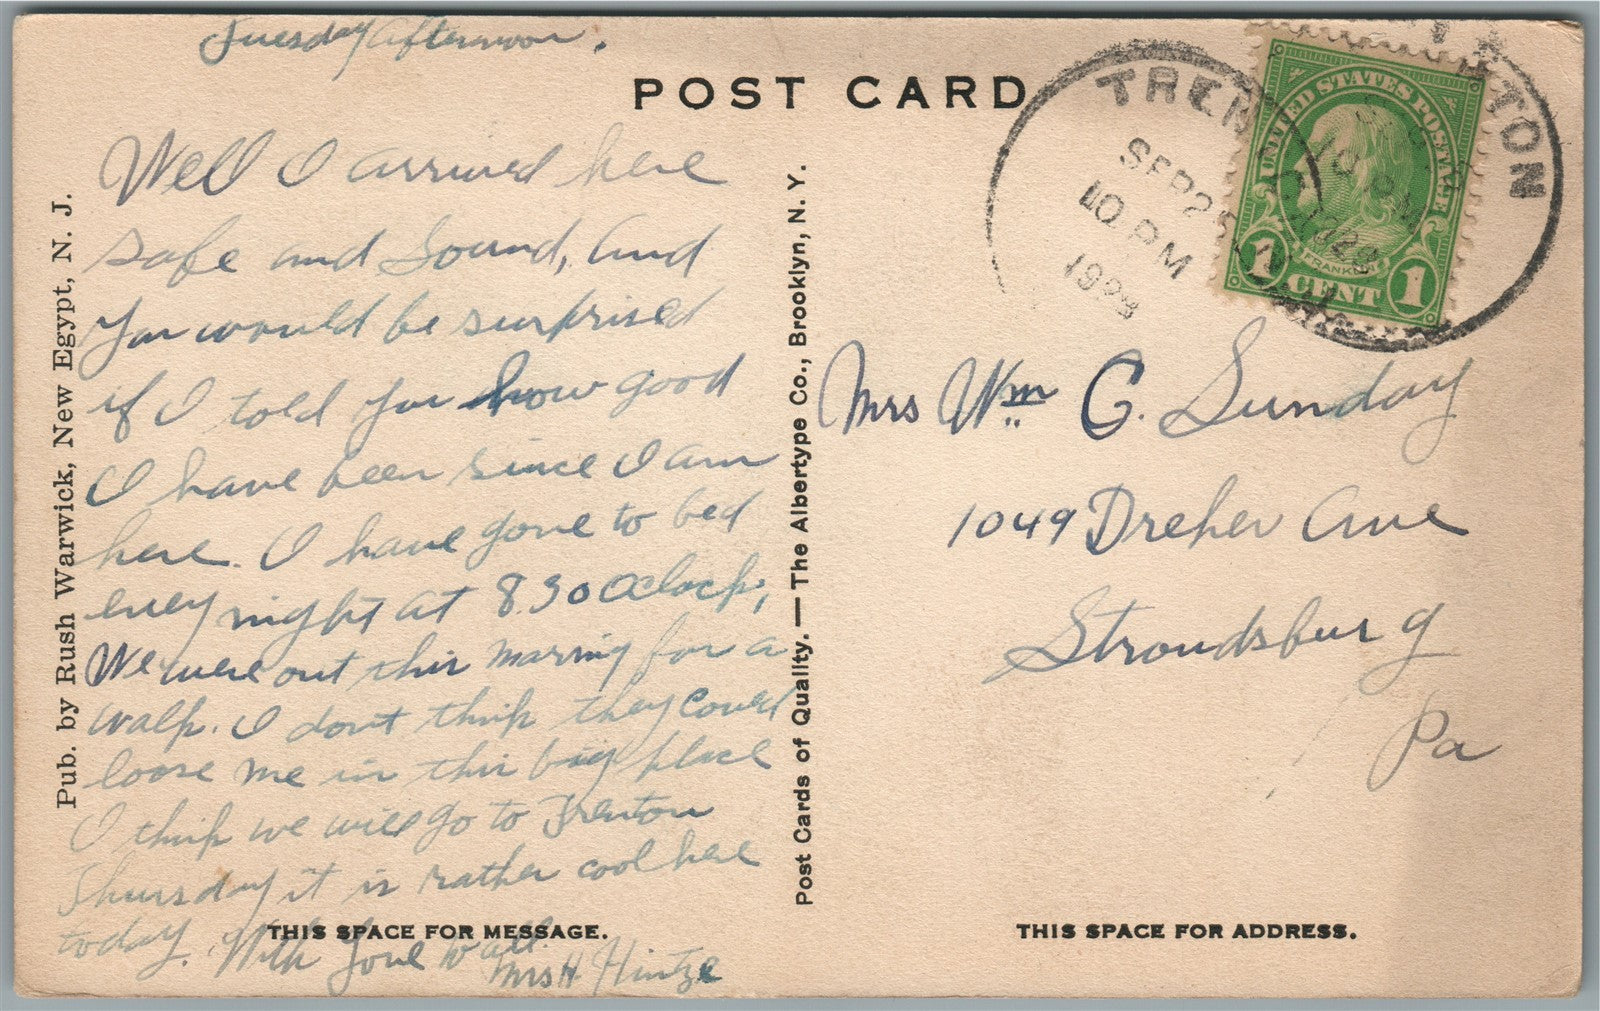 Tuesday Afternoon.
POST CARD
Well I arrived here
safe and Sound, and
You would be surprised
if I told you how good
I have been since I am
here. I have gone to bed
every night at 8.30 O clock,
We were out this morning for a
walk. I don't think they could
loose me in this big place
I think we will go to Trenton
Thursday it is rather cool here
today. With Love to all.
Mrs H Hintze
THIS SPACE FOR MESSAGE.
Pub. by Rush Warwick, New Egypt, N. J.
Post Cards of Quality.—The Albertype Co., Brooklyn, N. Y.
TRENTON
SEP 25
10 PM
UNITED STATES POSTAGE
FRANKLIN
1 CENT 1
Mrs Wm C. Sunday
1049 Dreher Ave
Stroudsburg
Pa
THIS SPACE FOR ADDRESS.